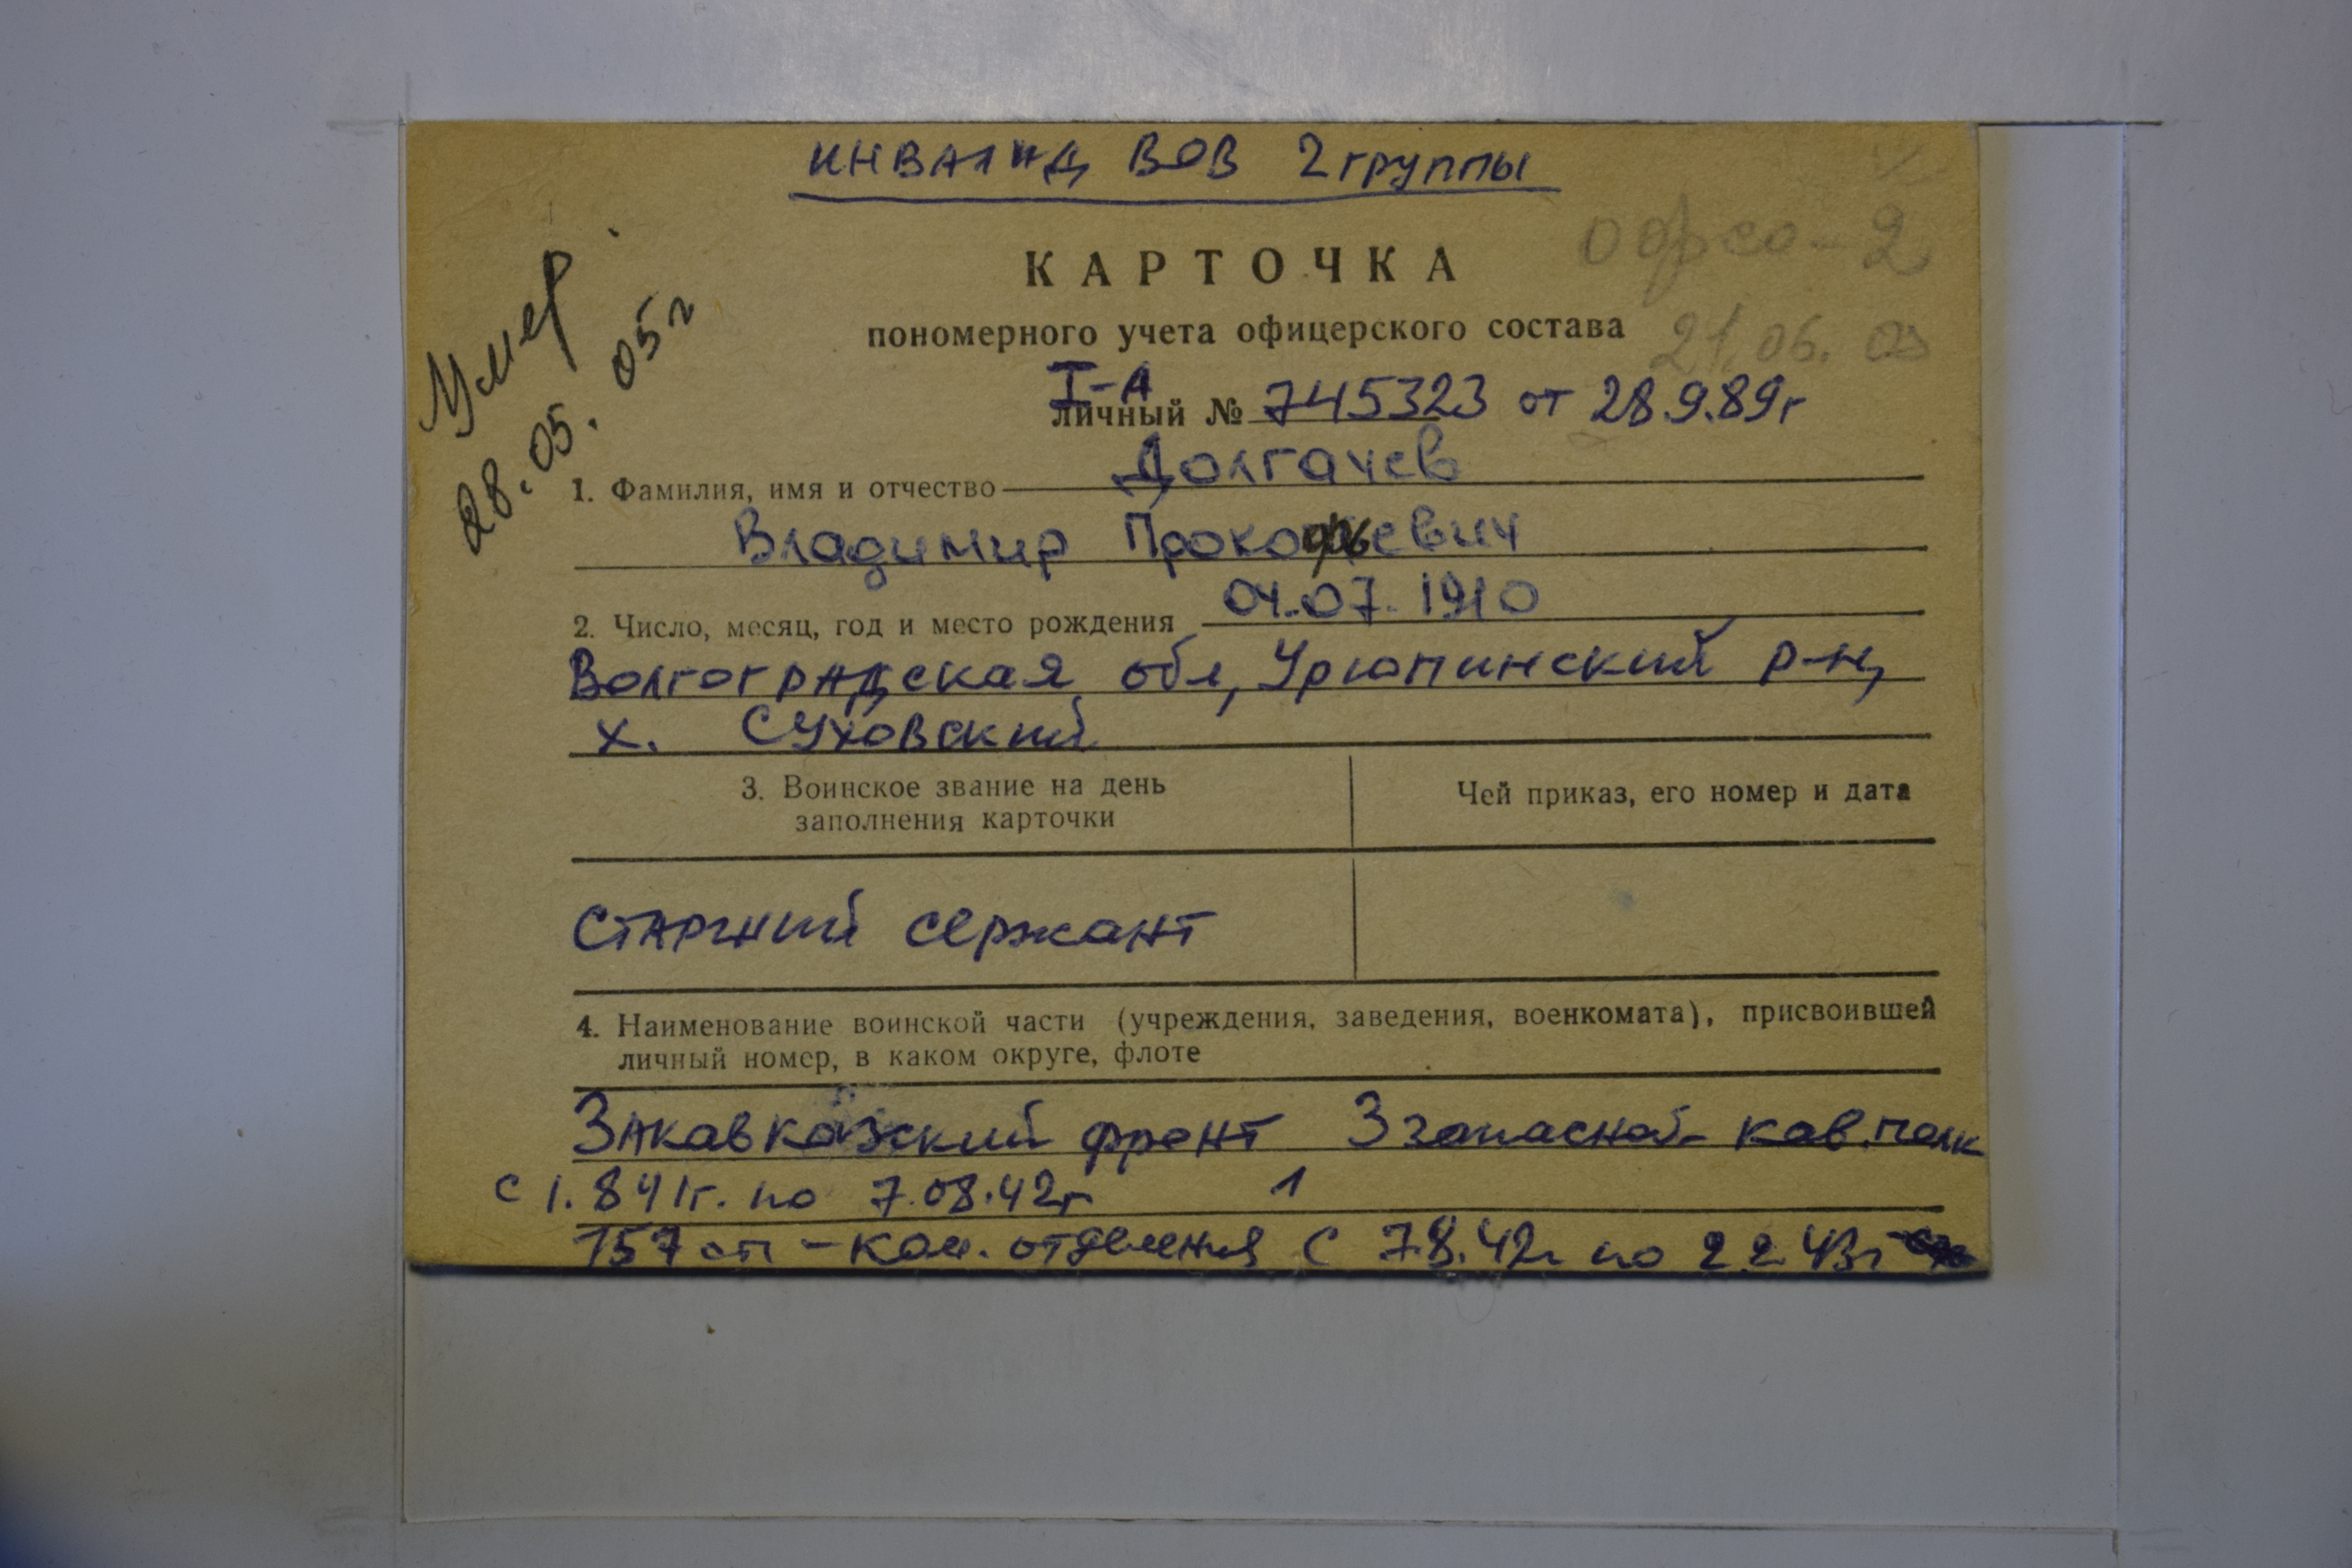 инвалид ВОВ 2 группы
КАРТОЧКА
пономерного учета офицерского состава
Умер
28.05.05г
21.06.
I-А
личный № 745323 от 28.9.89г
1. Фамилия, имя и отчество Долгачев
Владимир Прокофьевич
2. Число, месяц, год и место рождения 04.07.1910
Волгоградская обл, Урюпинский р-н,
х. Суховский
3. Воинское звание на день
заполнения карточки
Чей приказ, его номер и дата
старший сержант
4. Наименование воинской части (учреждения, заведения, военкомата), присвоившей
личный номер, в каком округе, флоте
Закавказский фронт 3 запасной кав.полк
с 1.8 41г. по 7.08.42г 1
157 сп - ком. отделения с 7.8.42г по 2.2 43г